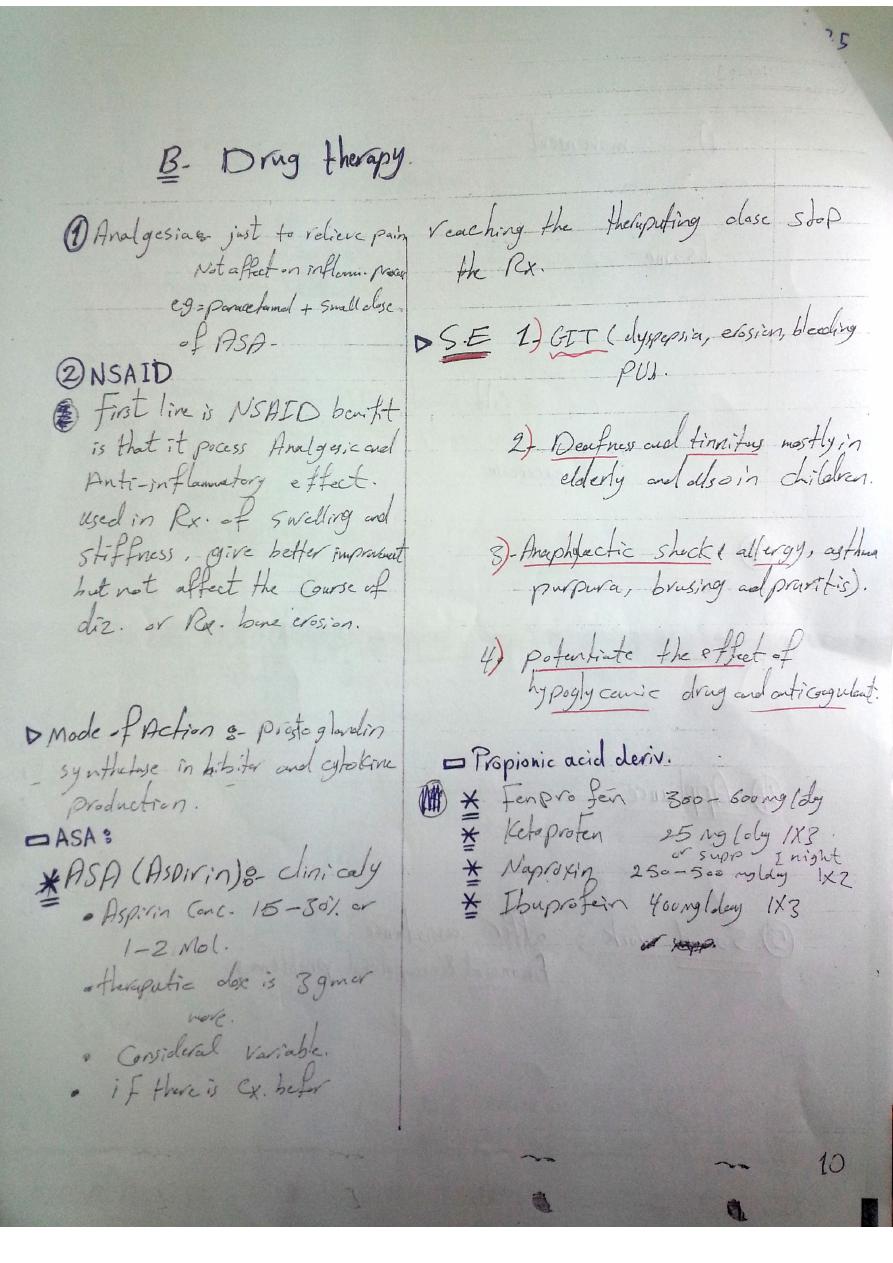 B- Drug therapy.
① Analgesia:- just to relieve pain,
Not affect on inflamm. process
eg = paracetamol + small dose
of ASA-
② NSAID
First line is NSAID benifit
is that it pocess Analgesic and
Anti-inflammatory effect.
used in Rx. of swelling and
stiffness, give better improvement
but not affect the course of
diz. or Rx. bone erosion.
▷ Mode of Action :- prostoglandin
synthetase inhibitor and cytokine
production.
▭ ASA:
* ASA (ASpirin):- clinicaly
• Aspirin Conc. 15-30% or
1-2 Mol.
• theraputic dose is 3 gm or
more.
• Consideral variable.
• if there is cx. befor
reaching the theraputing dose stop
the Rx.
▷ S.E 1) GIT (dyspepsia, erosion, bleeding
PUs.
2)- Deafness and tinnitus mostly in
elderly and also in children.
3)- Anaphylactic shock ( allergy, asthma
purpura, brusing and pruritis).
4) potentiate the effect of
hypoglycemic drug and anticoagulant.
▭ Propionic acid deriv.
* Fenprofen 300-600 mg/day
* Ketoprofen 25 mg/day 1X3
or supp 1 night
* Naproxin 250-500 mg/day 1X2
* Ibuprofein 400 mg/day 1X3
10